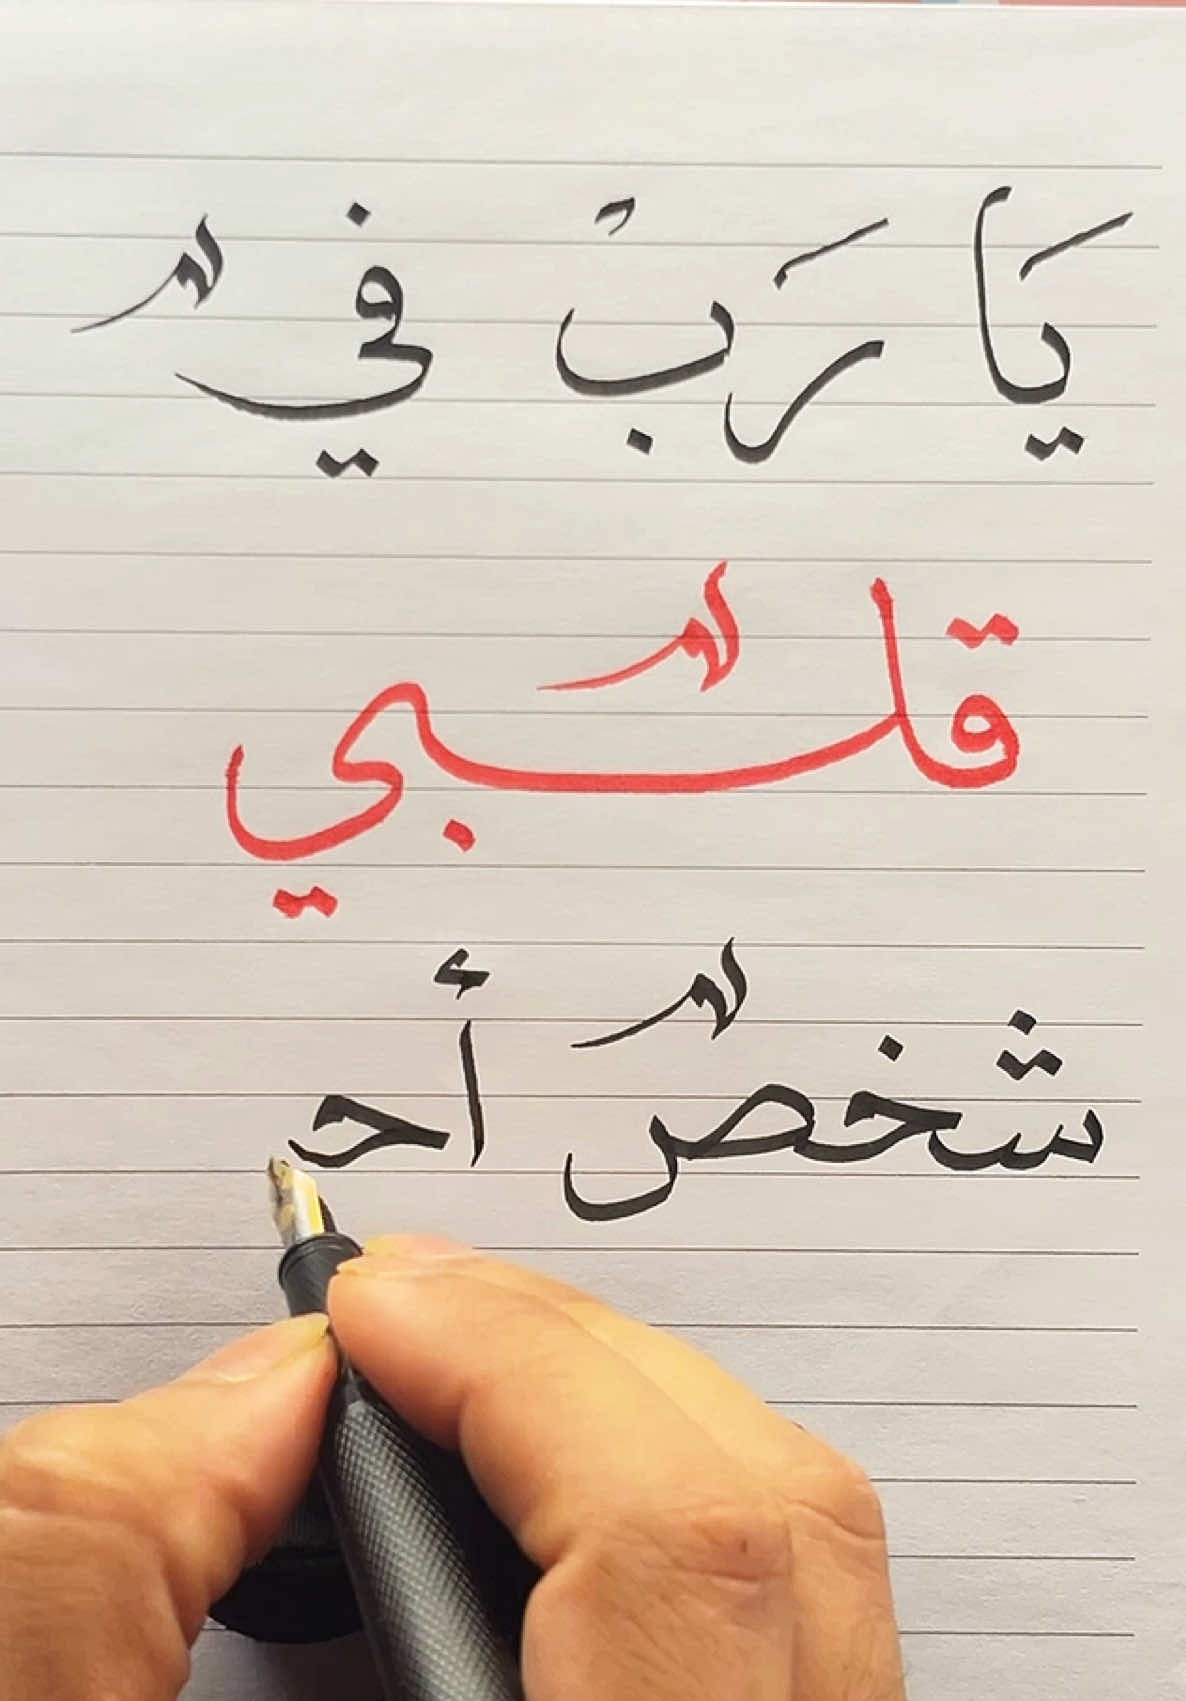 يَا رَبْ في
قلبي
شخص أحـ